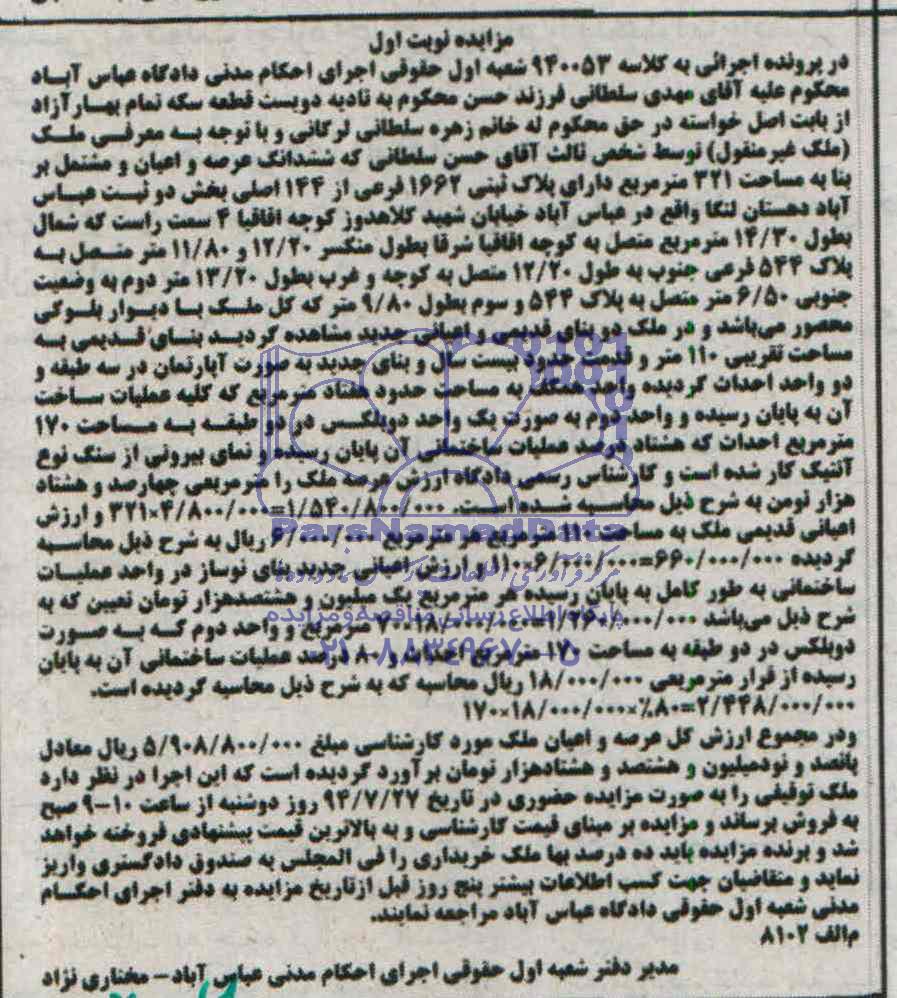 مزایده نوبت اول
در پرونده اجرائی به کلاسه ۹۴۰۰۵۳ شعبه اول حقوقی اجرای احکام مدنی دادگاه عباس آباد
محکوم علیه آقای مهدی سلطانی فرزند حسن محکوم به تادیه دویست قطعه سکه تمام بهار آزاد
از بابت اصل خواسته در حق محکوم له خانم زهره سلطانی لرگانی و با توجه به معرفی ملک
(ملک غیر منقول) توسط شخص ثالث آقای حسن سلطانی که ششدانگ عرصه و اعیان و مشتمل بر
بنا به مساحت ۳۲۱ مترمربع دارای پلاک ثبتی ۱۶۶۲ فرعی از ۱۴۴ اصلی بخش دو ثبت عباس
آباد دهستان لنگا واقع در عباس آباد خیابان شهید کلاهدوز کوچه اقاقیا ۴ سمت راست که شمال
بطول ۱۴/۳۰ مترمربع متصل به کوچه اقاقیا شرقا بطول منکسر ۱۲/۲۰ و ۱۱/۸۰ متر متصل به
پلاک ۵۴۴ فرعی جنوب به طول ۱۲/۲۰ متصل به کوچه و غرب بطول ۱۳/۲۰ متر دوم به وضعیت
جنوبی ۶/۵۰ متر متصل به پلاک ۵۴۴ و سوم بطول ۹/۸۰ متر که کل ملک با دیوار بلوکی
محصور می‌باشد و در ملک دو بنای قدیمی و اعیانی جدید مشاهده گردید بنای قدیمی به
مساحت تقریبی ۱۱۰ متر و قدمت حدود بیست سال و بنای جدید به صورت آپارتمان در سه طبقه و
دو واحد احداث گردیده واحد همکف به مساحت حدود هفتاد مترمربع که کلیه عملیات ساخت
آن به پایان رسیده و واحد دوم به صورت یک واحد دوبلکس در دو طبقه به مساحت ۱۷۰
مترمربع احداث که هشتاد درصد عملیات ساختمانی آن پایان رسیده و نمای بیرونی از سنگ نوع
آنتیک کار شده است و کارشناس رسمی دادگاه ارزش عرصه ملک را مترمربعی چهارصد و هشتاد
هزار تومن به شرح ذیل محاسبه شده است. ۳۲۱×۴/۸۰۰/۰۰۰=۱/۵۴۰/۸۰۰/۰۰۰ و ارزش
اعیانی قدیمی ملک به مساحت ۱۱۰ مترمربع هر مترمربع ۶/۰۰۰/۰۰۰ ریال به شرح ذیل محاسبه
گردیده ۱۱۰×۶/۰۰۰/۰۰۰=۶۶۰/۰۰۰/۰۰۰ و ارزش اعیانی جدید بنای نوساز در واحد عملیات
ساختمانی به طور کامل به پایان رسیده هر مترمربع یک میلیون و هشتصدهزار تومان تعیین که به
شرح ذیل می‌باشد ۷۰×۱۸/۰۰۰/۰۰۰=۱/۲۶۰/۰۰۰/۰۰۰ مترمربع و واحد دوم که به صورت
دوبلکس در دو طبقه به مساحت ۱۷۰ مترمربع احداث و ۸۰ درصد عملیات ساختمانی آن به پایان
رسیده از قرار مترمربعی ۱۸/۰۰۰/۰۰۰ ریال محاسبه که به شرح ذیل محاسبه گردیده است.
۱۷۰×۱۸/۰۰۰/۰۰۰×٪۸۰=۲/۴۴۸/۰۰۰/۰۰۰
ودر مجموع ارزش کل عرصه و اعیان ملک مورد کارشناسی مبلغ ۵/۹۰۸/۸۰۰/۰۰۰ ریال معادل
پانصد و نودمیلیون و هشتصد و هشتادهزار تومان برآورد گردیده است که این اجرا در نظر دارد
ملک توقیفی را به صورت مزایده حضوری در تاریخ ۹۴/۷/۲۷ روز دوشنبه از ساعت ۱۰-۹ صبح
به فروش برساند و مزایده بر مبنای قیمت کارشناسی و به بالاترین قیمت پیشنهادی فروخته خواهد
شد و برنده مزایده باید ده درصد بها ملک خریداری را فی المجلس به صندوق دادگستری واریز
نماید و متقاضیان جهت کسب اطلاعات بیشتر پنج روز قبل ازتاریخ مزایده به دفتر اجرای احکام
مدنی شعبه اول حقوقی دادگاه عباس آباد مراجعه نمایند.
م‌الف ۸۱۰۲
مدیر دفتر شعبه اول حقوقی اجرای احکام مدنی عباس آباد – مختاری نژاد
ParsNamadData
پایگاه اطلاع رسانی مناقصه و مزایده
۰۲۱-۸۸۳۴۹۶۷۰-۵